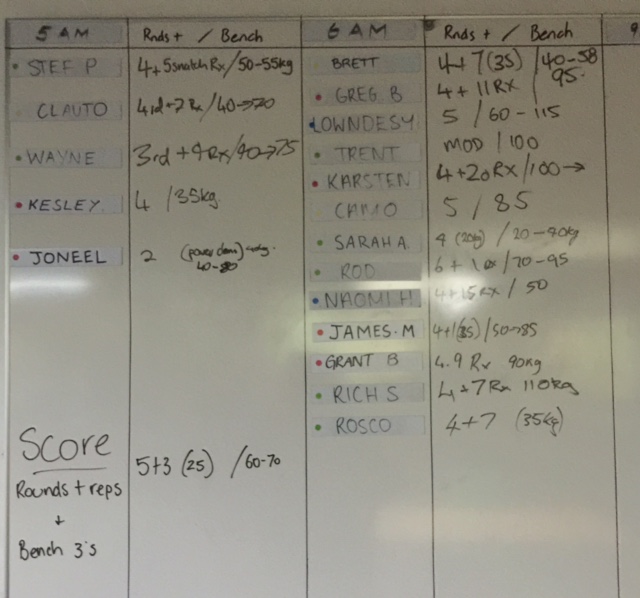 5 AM Rnds + / Bench
STEF P 4+5 snatch Rx/50-55kg
CLAUTO 4rd+7Rx/40→70
WAYNE 3rd+9Rx/40→75
KESLEY 4 /35kg
JONEEL 2 (power clean)
40-80
Score 5+3 (25) /60-70
Rounds + reps
+
Bench 3's
6 AM Rnds + / Bench
BRETT 4+7(35) /40-58
GREG B 4+11RX / 95
LOWNDESY 5 /60-115
TRENT MOD /100
KARSTEN 4+20RX/100→
CAMO 5 / 85
SARAH A 4 (20kg) /20-40kg
ROD 6+1Rx/70-95
NAOMI H 4+15RX / 50
JAMES.M 4+1(35)/50→85
GRANT B 4.9 Rx 90kg
RICH S 4+7Rx 110kg
ROSCO 4+7 (35kg)
9